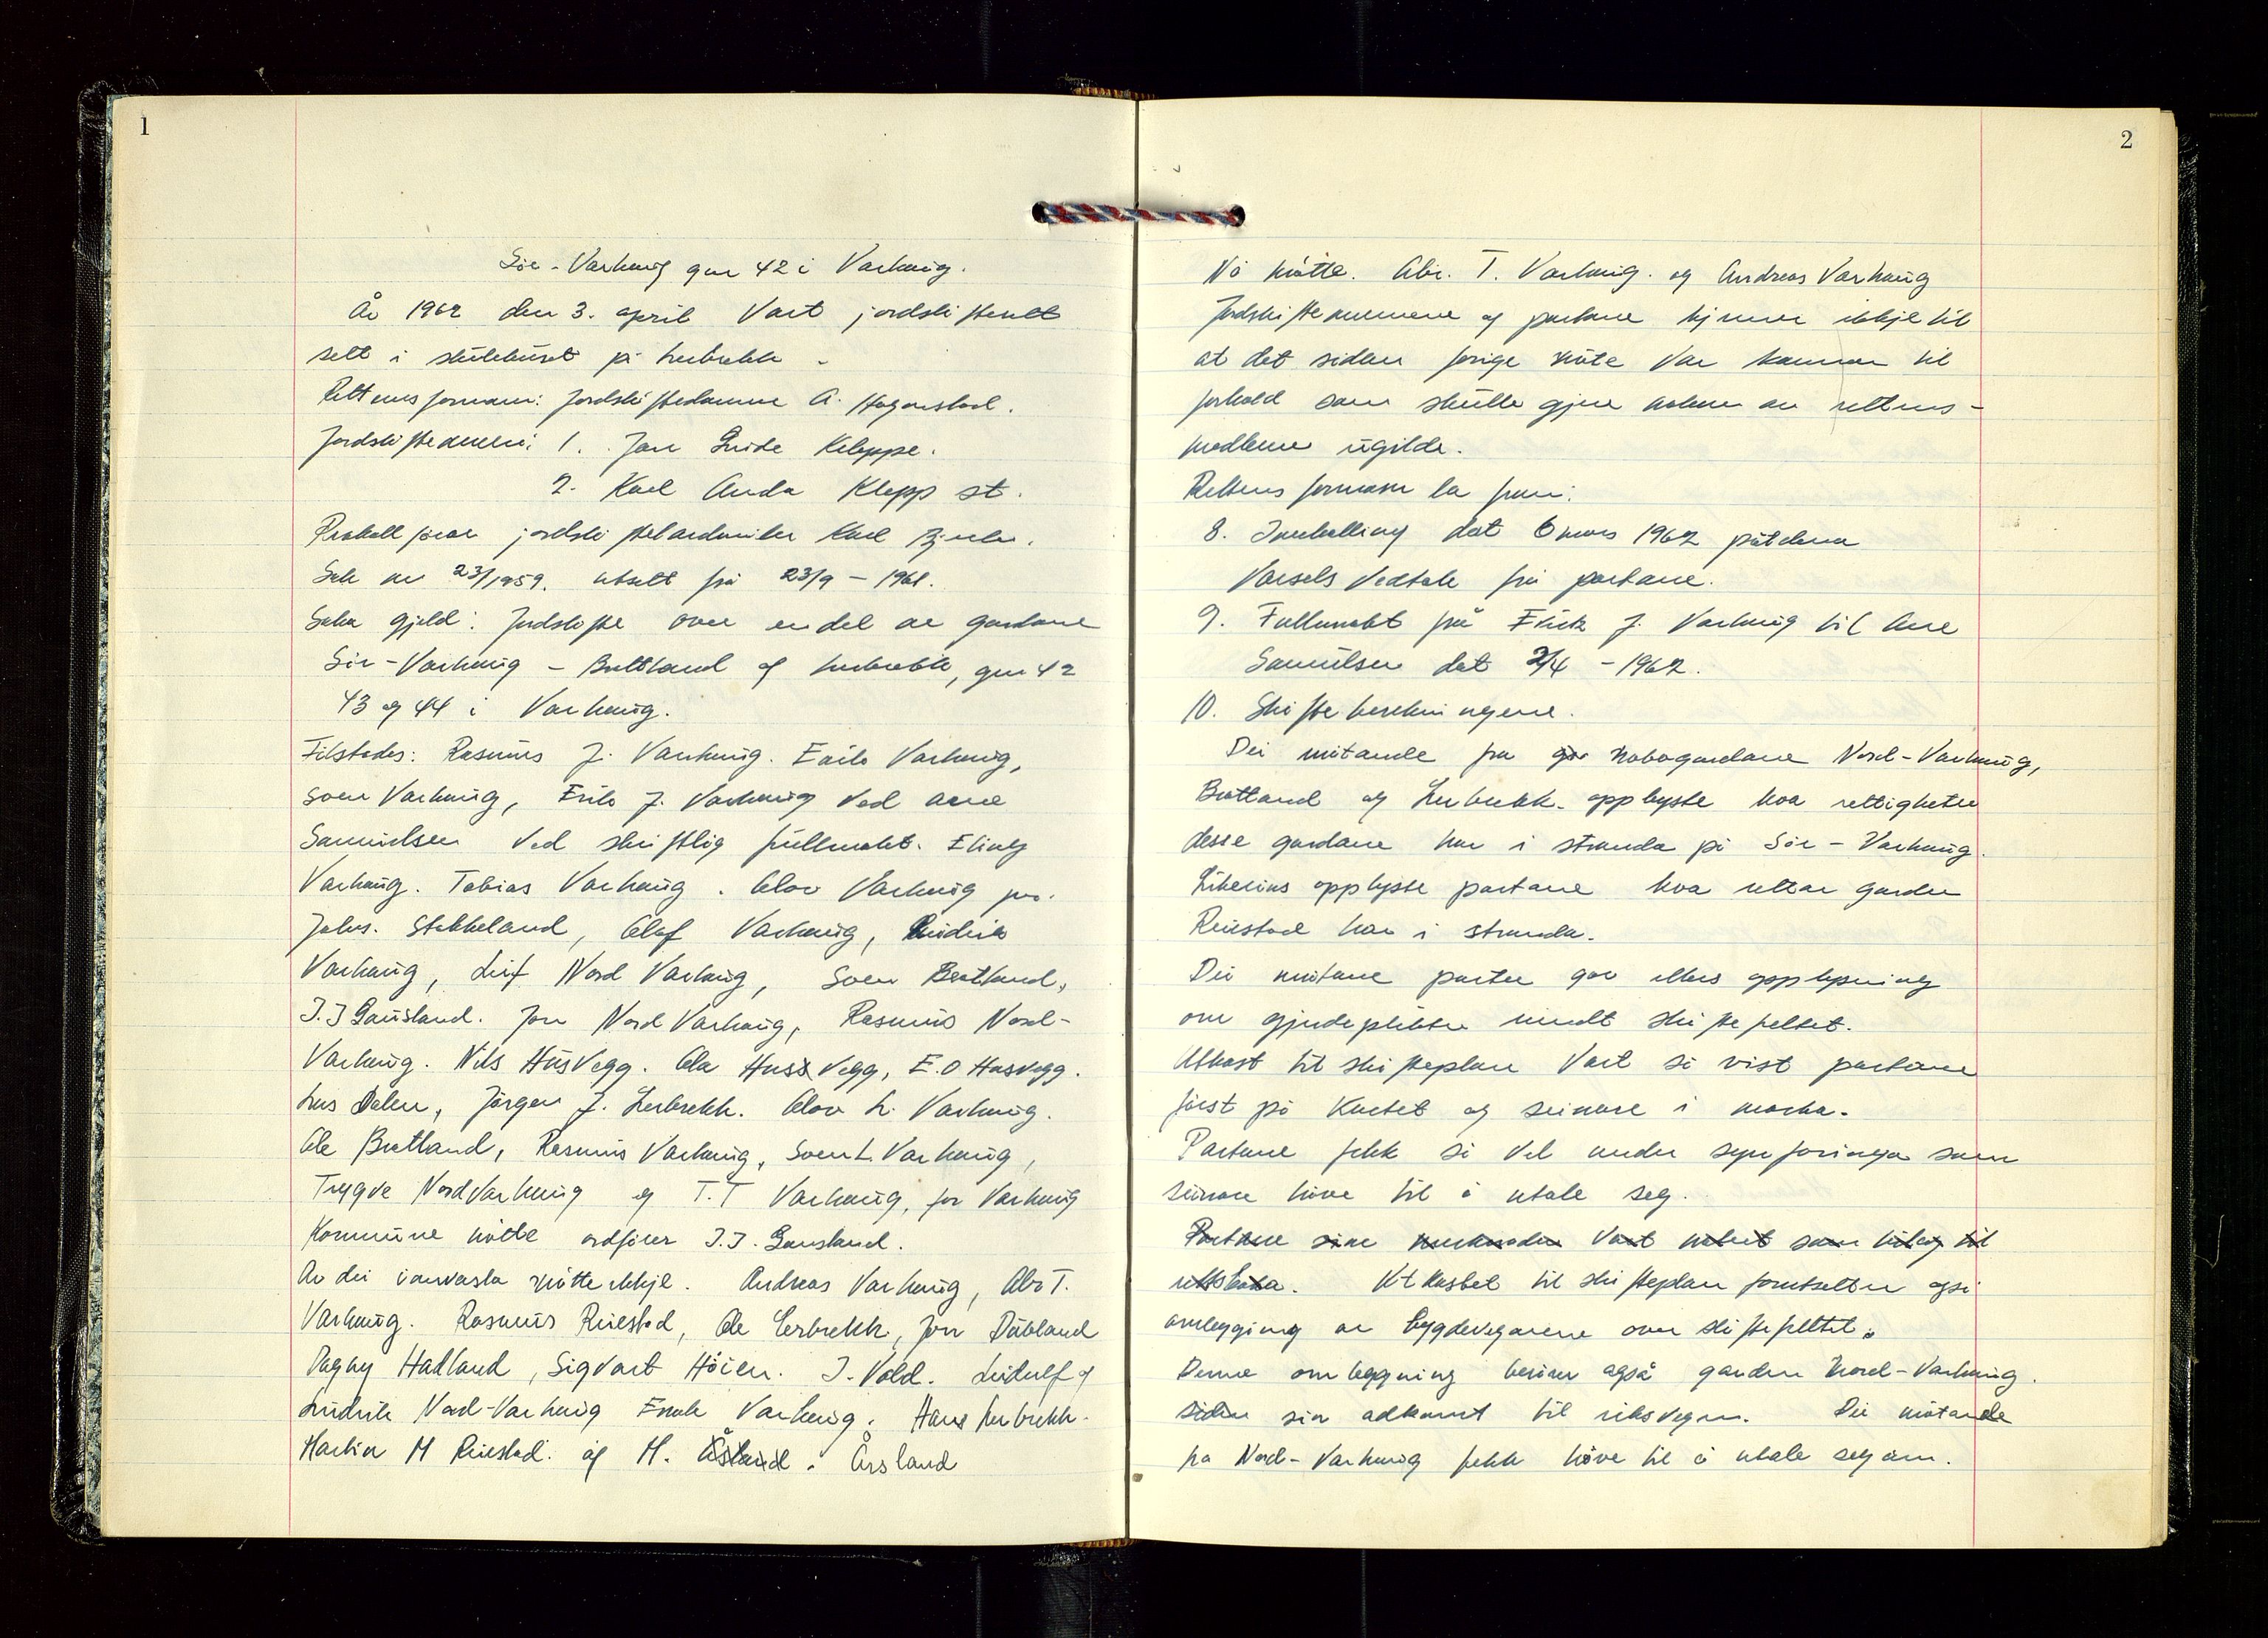 1
Sør-Varhaug gnr 42 i Varhaug.
År 1962 den 3. april vart jordskifterett
sett i skulehuset på Lerbrekk.
Rettens formann: Jordskiftedommar A. Hagenstad.
Jordskiftemenn: 1. Jon Kleppe.
2. Karl Anda Klepp st.
Protokollførar jordskiftekandidat Karl
Sak nr 23/1959. utsett frå 23/9 - 1961.
Saka gjeld: Jordskifte over endel av gardane
Sør-Varhaug - Bratland og Lerbrekk, gnr 42
43 og 44 i Varhaug.
Tilstades: Rasmus J. Varhaug. Eirik Varhaug,
Sven Varhaug, Erik J. Varhaug ved Arne
Samuelsen ved skriftlig fullmakt. Elling
Varhaug. Tobias Varhaug. Olav Varhaug
Johs. Stokkeland, Olaf Varhaug,
Varhaug, Leif Nord Varhaug, Sven Bratland,
J.J Gausland. Jon Nord Varhaug, Rasmus Nord-
Varhaug. Nils Husvegg. Ola Husvegg, E.O Husvegg.
Lars Dalen, Jørgen J. Lerbrekk. Olav L. Varhaug.
Ole Bratland, Rasmus Varhaug, Sven L. Varhaug,
Trygve Nord Varhaug og T.T Varhaug, for Varhaug
Kommune møtte ordførar J.J. Gausland.
Av dei innvarsla møtte ikkje. Andreas Varhaug, Abr T.
Varhaug. Rasmus Reiestad, Ole Lerbrekk, Jon Dubland
Dagny Hadland, Sigvart Höien. J. Vold. Leidulf og
Nord-Varhaug Enok Varhaug. Hans Lerbrekk.
Martin M Reiestad. og M. Årsland
2
No møtte. Abr. T. Varhaug. og Andreas Varhaug
Jordskiftemennene og partane kjenner ikkje til
at det sidan forige møte var kommen til
forhold som skulle gjere nokon av rettens-
medlemer ugilde.
Rettens formann la fram:
8. Innkalling dat 6 mars 1962 påteikna
varsels vedtak frå partane.
9. Fullmakt frå Erik J. Varhaug til Arne
Samuelsen dat 2/4 - 1962.
10. Skifteberekningene.
Dei møtande fra nabogardane Nord-Varhaug,
Bratland og Lerbrekk. opplyste kva rettigheter
desse gardane har i stranda på Sør-Varhaug.
Likeeins opplyste partane kva rettar garden
Reiestad har i stranda.
Dei møtane parter gav ellers opplysning
om gjerdeplikten rundt skiftefeltet.
Utkast til skifteplan vart så vist partane
først på kartet og seinare i marka.
Partane fekk så vel under synfaringa som
seinare høve til å utale seg.
Partane sine merknader vart notert som tilegg til
rettsboka. Utkastet til skifteplan forutsetter også
omlegging av bygdevegarene over skiftefeltet.
Denne omleggning berører også garden Nord-Varhaug.
Siden sin adkomst til riksvegen. Dei møtande
fra Nord-Varhaug fekk høve til å utale seg om.